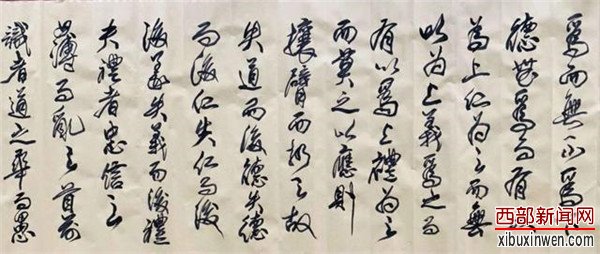 爲而無不爲
德無爲而有
爲上仁为之而無
以为上義爲之而
有以爲上禮为之
而莫之以應則
攘臂而扔之故
失道而後德失德
而後仁失仁而後
後義失義而後禮
夫禮者忠信之
薄而亂之首前
識者道之華而愚
西部新闻网
xibuxinwen.com